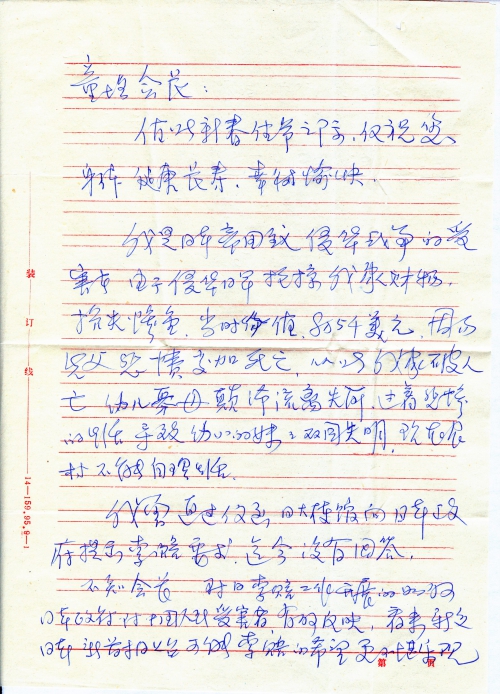 童增会长：
值此新春佳节之际，仅祝您、
身体健康长寿，幸福愉快．
我是日本帝国主义侵华战争的受
害者 由于侵华日军抢掠我家财物，
损失惨重，当时价值，8万5千美元，因而
父 愤交加死亡，从此我家破人
亡 幼儿寡 颠沛流离失所，过着悲惨
的生活 导致幼小的妹妹双目失明，现在农
村不能自理生活．
我曾通过 日大使馆向日本政
府提出索赔要求，迄今没有回答．
不知会长 对日索赔工作开展的如何
日本政府对中国人民受害者有何反映，看来新近
日本 首相上台 索赔的希望更 乐观
装 订 线
14—159.95.9—1
第 页